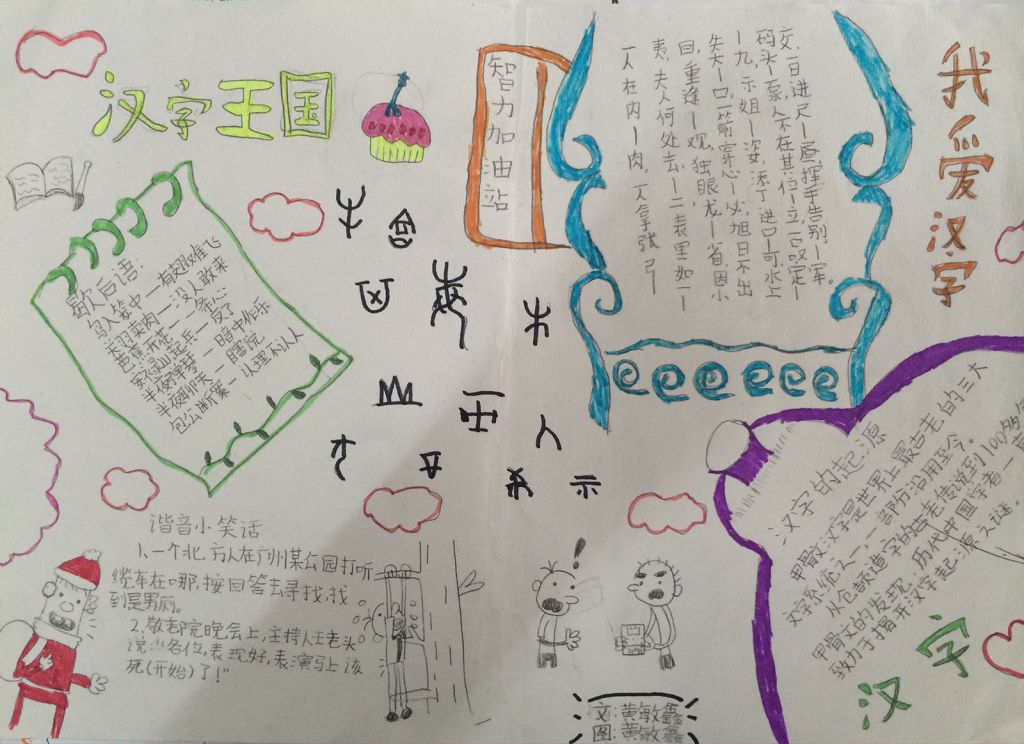 汉字王国
智力加油站
我爱汉字
歇后语:
鸟入笼中—有翅难飞
关羽卖肉—没人敢来
芭蕉开花—一条心
半夜弹琴—暗中作乐
半夜聊天—瞎说
包公断案—认理不认人
人在内—肉,一人拿张弓—
夷,夫人何处去—二,表里如一—
回,重逢—观,独眼龙—省,因小
失大—口,一箭穿心—必,旭日不出
—九,示姐—姿,添了进口—可,水上
码头—泵,人不在其位—立,一口咬定—
交,一日进尺—昼,挥手告别—军。
汉字的起源
甲骨文汉字是世界上最古老的三大
文字系统之一,一部份沿用至今。
从仓颉造字的古老传说到100多年
甲骨文的发现,历代中国学者一
致力于揭开汉字起源之谜。
汉字
谐音小笑话
1、一个北方人在广州某公园打听
缆车在哪,按回答去寻找,找
到是男厕。
2、敬老院晚会上,主持人王老头
说:"各位,表现好,表演马上该
死(开始)了!"
文:黄敏鑫
图:黄敏鑫